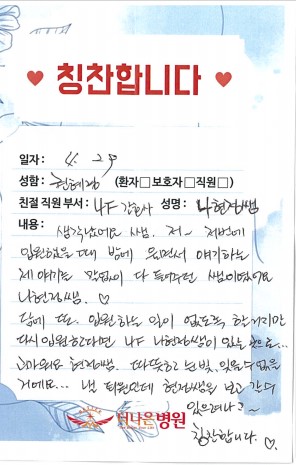 칭찬합니다
일자: 4. 29
성함: 현혜정 (환자□보호자□직원□)
친절 직원 부서: 4F 간호사 성명: 나현정쌤
내용: 생각났어요 쌤. 저~ 저번에
입원했을 때 밤에 울면서 얘기하는
제 얘기를 말없이 다 들어주던 쌤이었어요
나현정쌤. ♡
담에 또 입원하는 일이 없도록 할거지만
다시 입원한다면 4F 나현정쌤이 있는 곳으로...
고마워요 현정쌤. 따뜻하고 눈빛 잊을 수 없을
거에요... 낼 퇴원인데 현정쌤을 보고 갈 수
있으려나?~
더나은병원
칭찬합니다. ♡